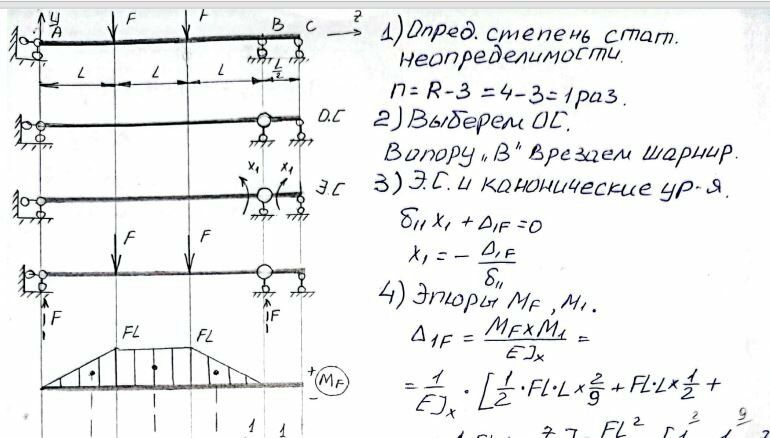 y
A
F
F
B
C
z
L
L
L
L/2
О.С
X₁ X₁
Э.С
F
F
F
F
FL
FL
+
M_F
-
1 1
1) Опред. степень стат.
неопределимости.
n = R-3 = 4-3 = 1 раз.
2) Выберем ОС.
В опору „В" врезаем шарнир.
3) Э.С. и канонические ур-я.
δ₁₁ X₁ + Δ₁F = 0
X₁ = - Δ₁F / δ₁₁
4) Эпюры M_F, M₁.
Δ₁F = M_F × M₁ / EJₓ =
= 1/EJₓ · [1/2 · FL·L × 2/9 + FL·L × 1/2 +
FL²